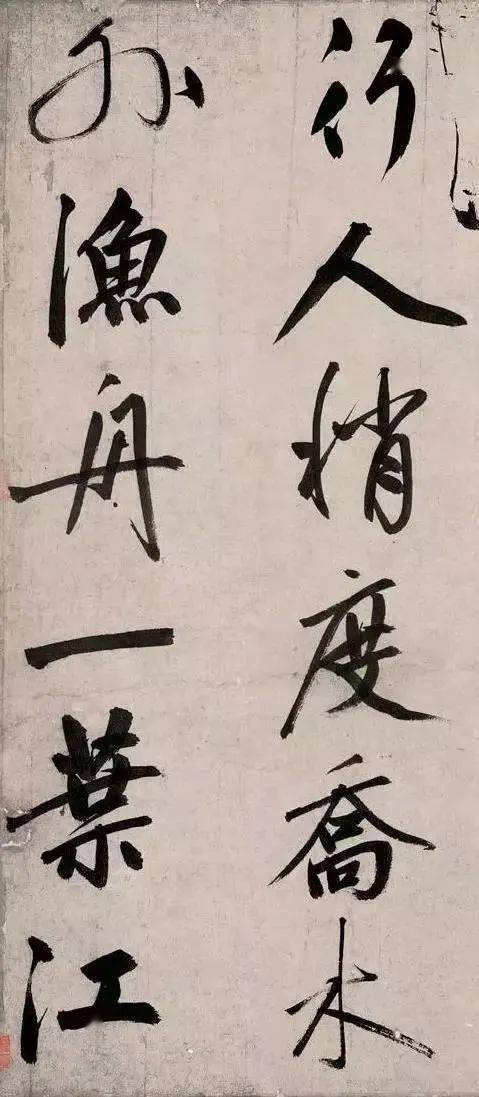 行人稍度喬木
外漁舟一葉江